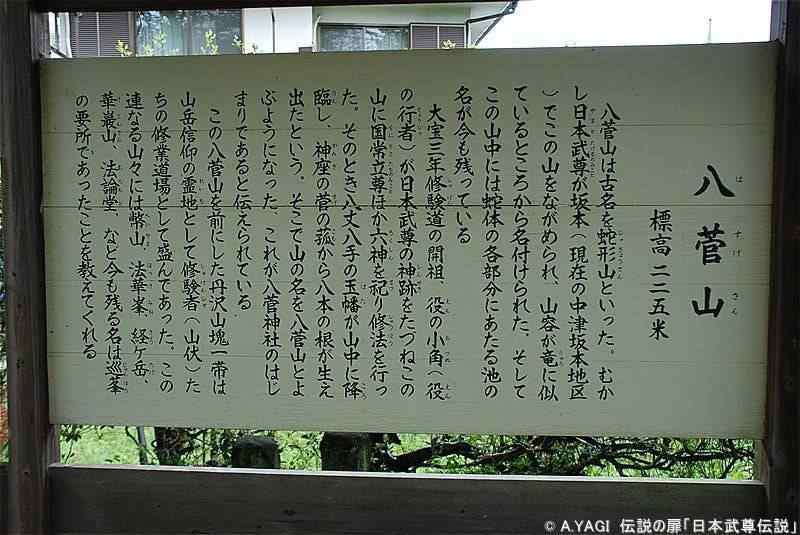 八菅山
標高二二五米
八菅山は古名を蛇形山といった。むか
し日本武尊が坂本（現在の中津坂本地区
）でこの山をながめられ、山容が竜に似
ているところから名付けられた。そして
この山中には蛇体の各部分にあたる池の
名が今も残っている
大宝三年修験道の開祖、役の小角（役
の行者）が日本武尊の神跡をたづねこの
山に国常立尊ほか六神を祀り修法を行っ
た。そのとき八丈八手の玉幡が山中に降
臨し、神座の菅の菰から八本の根が生え
出たという。そこで山の名を八菅山とよ
ぶようになった。これが八菅神社のはじ
まりであると伝えられている
この八菅山を前にした丹沢山塊一帯は
山岳信仰の霊地として修験者（山伏）た
ちの修業道場として盛んであった。この
連なる山々には幣山、法華峯、経ヶ岳、
華厳山、法論堂、など今も残る名は巡峯
の要所であったことを教えてくれる
© A.YAGI 伝説の扉「日本武尊伝説」